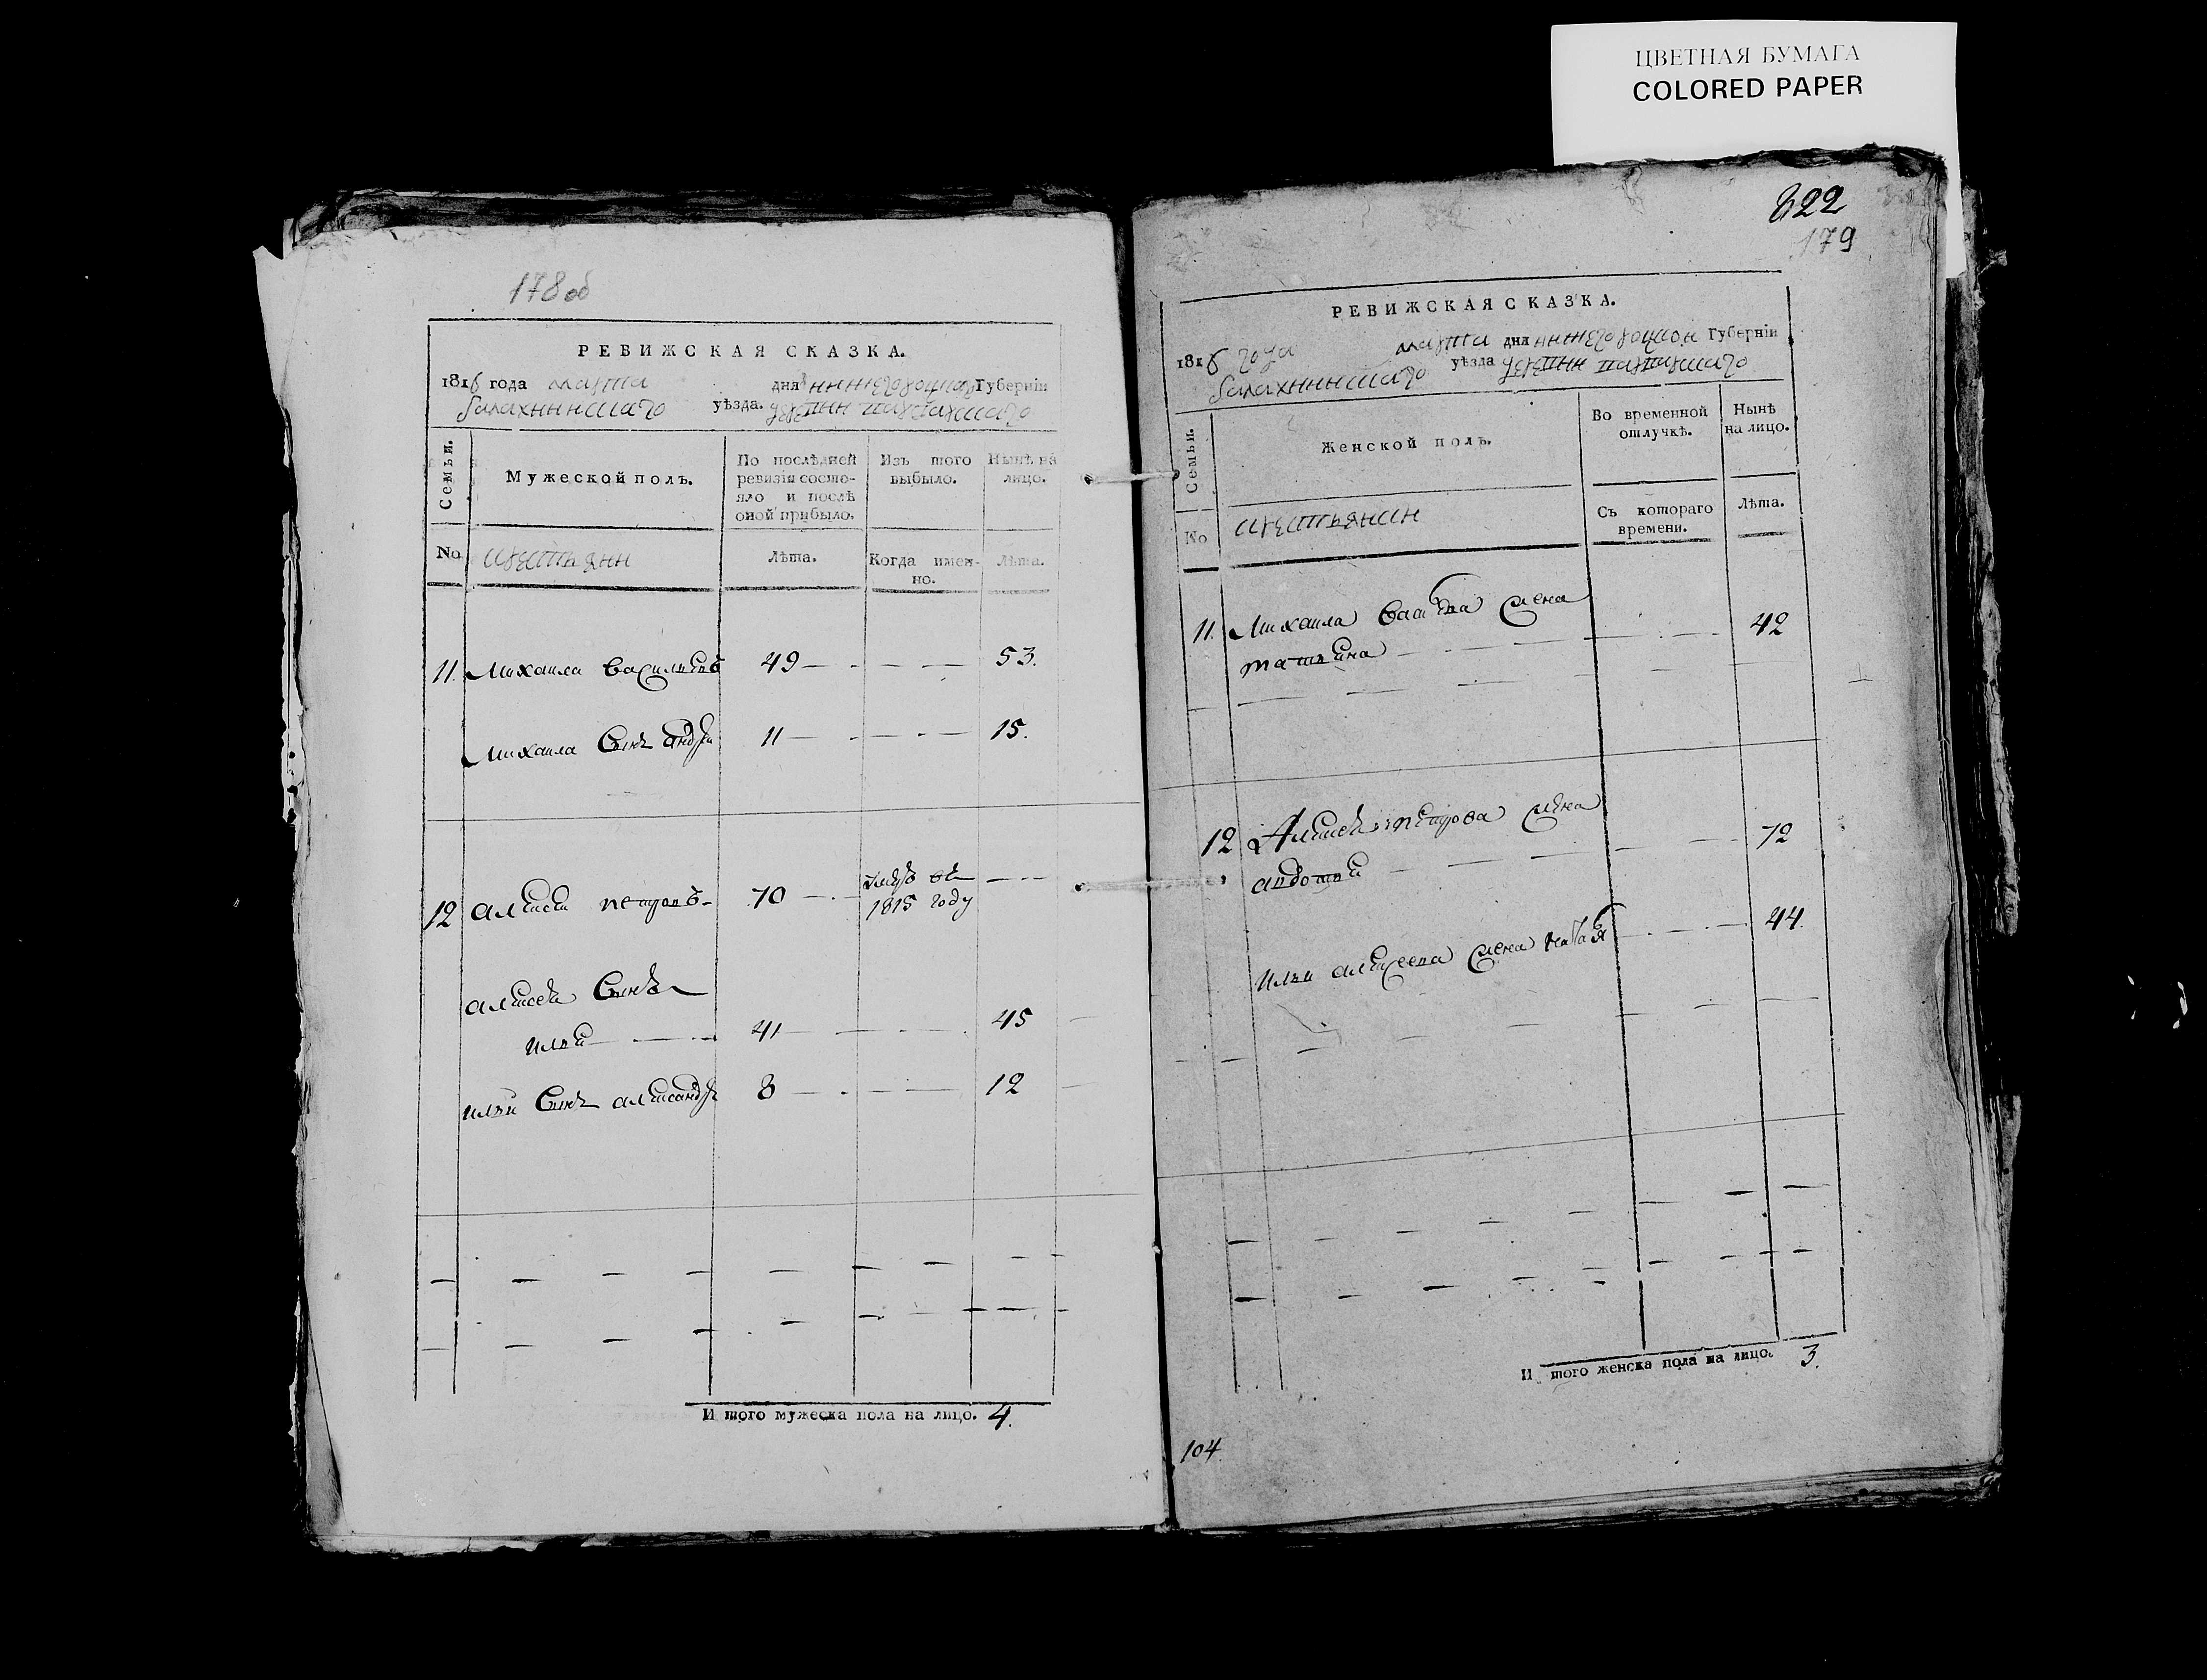 ЦВЕТНАЯ БУМАГА
COLORED PAPER
178 об
РЕВИЖСКАЯ СКАЗКА.
1816 года марта дня нижегороцкой Губерніи
балахнинскаго уѣзда.
Семьи.
Мужеской полъ.
По послѣдней ревизіи состояло и послѣ оной прибыло.
Изъ того выбыло.
Нынѣ на лицо.
No
Лѣта.
Когда именно.
Лѣта.
11. Михаила васильевъ 49 53.
Михаила сынъ андрей 11 15.
12 алексей петровъ 70 умре въ 1815 году
алексея сынъ
илья 41 45
ильи сынъ александръ 8 12
И того мужеска пола на лицо. 4.
822
179
РЕВИЖСКАЯ СКАЗКА.
1816 года марта дня нижегороцкой Губерніи
балахнинскаго уѣзда
Семьи.
Женской полъ.
Во временной отлучкѣ.
Нынѣ на лицо.
No
Съ котораго времени.
Лѣта.
11. Михаила жена
татьяна 42
12 Алексея петрова жена
авдотья 72
ильи алексеева жена 44.
И того женска пола на лицо. 3.
104